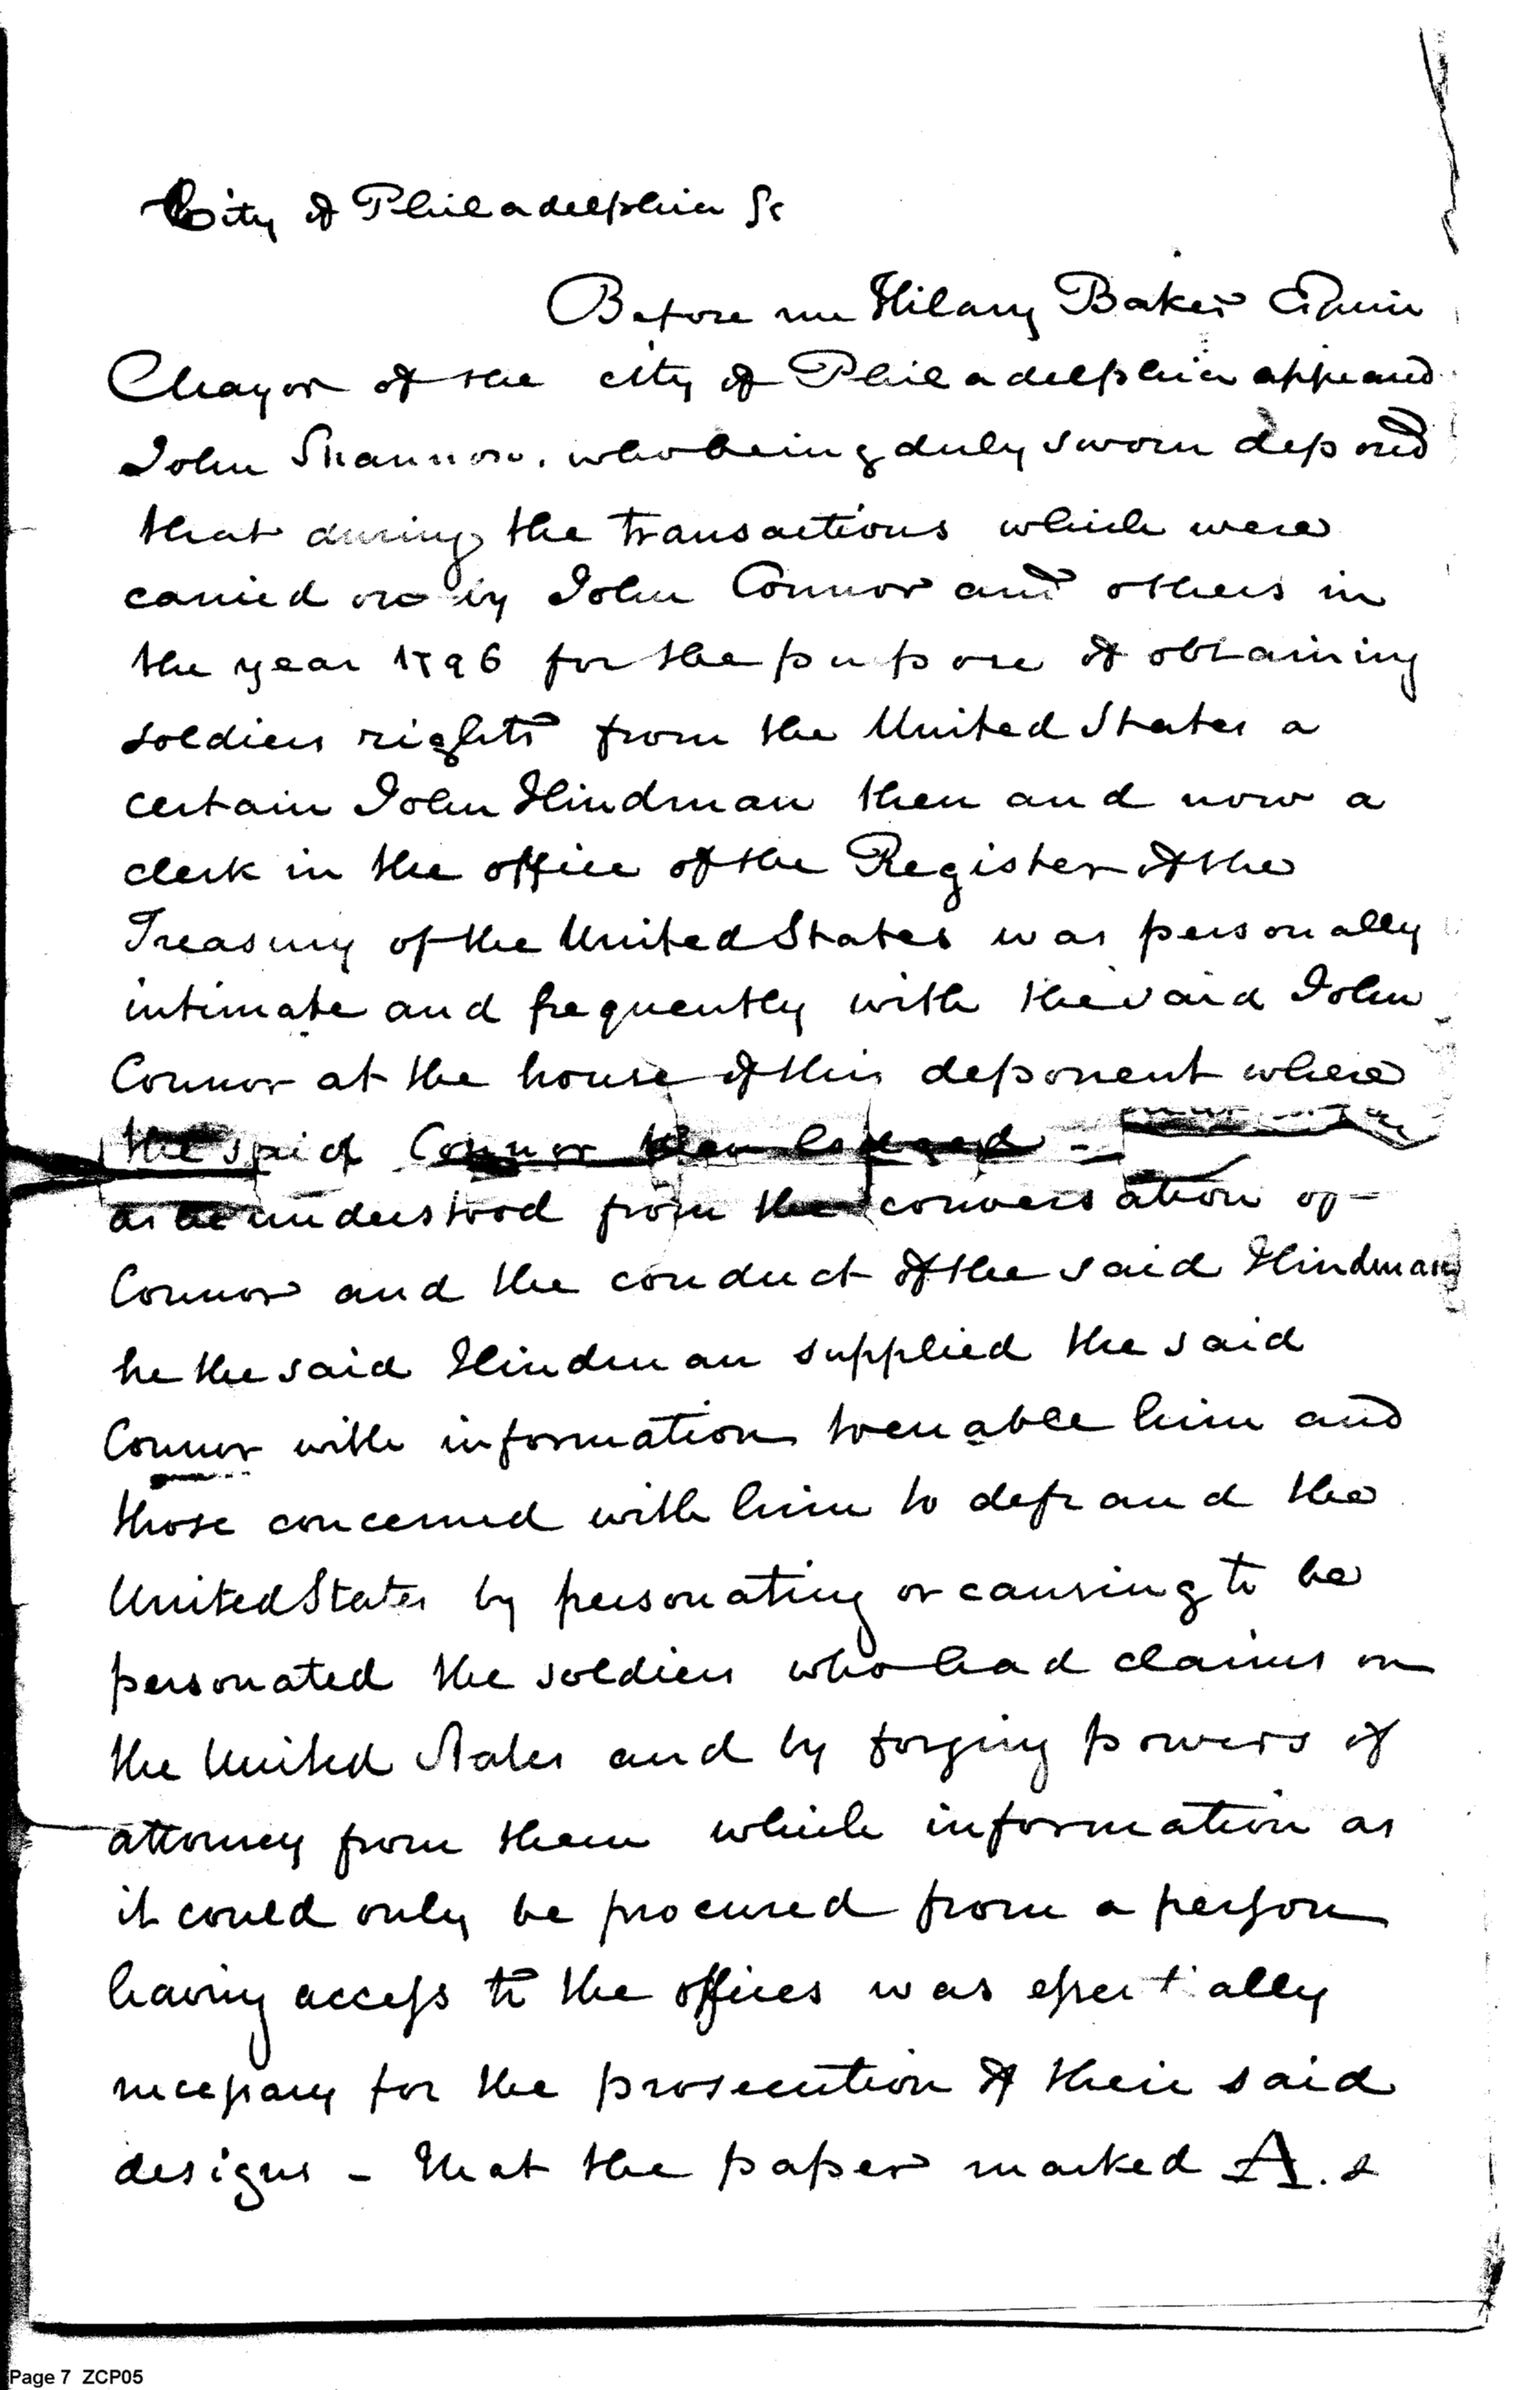 City of Philadelphia Ss
Before me Hilary Baker Esquire
Mayor of the city of Philadelphia appeared
John Shannon. who being duly sworn deposed
that during the transactions which were
carried on by John Connor and others in
the year 1796 for the purpose of obtaining
soldiers rights from the United States a
certain John Hindman then and now a
clerk in the office of the Register of the
Treasury of the United States was personally
intimate and frequently with the said John
Connor at the house of this deponent where
the said Connor then lodged -
as he understood from the conversation of
Connor and the conduct of the said Hindman
he the said Hindman supplied the said
Connor with information to enable him and
those concerned with him to defraud the
United States by personating or causing to be
personated the soldiers who had claims on
the United States and by forging powers of
attorney from them which information as
it could only be procured from a person
having access to the offices was essentially
necessary for the prosecution of their said
designs - that the paper marked A. &
Page 7 ZCP05